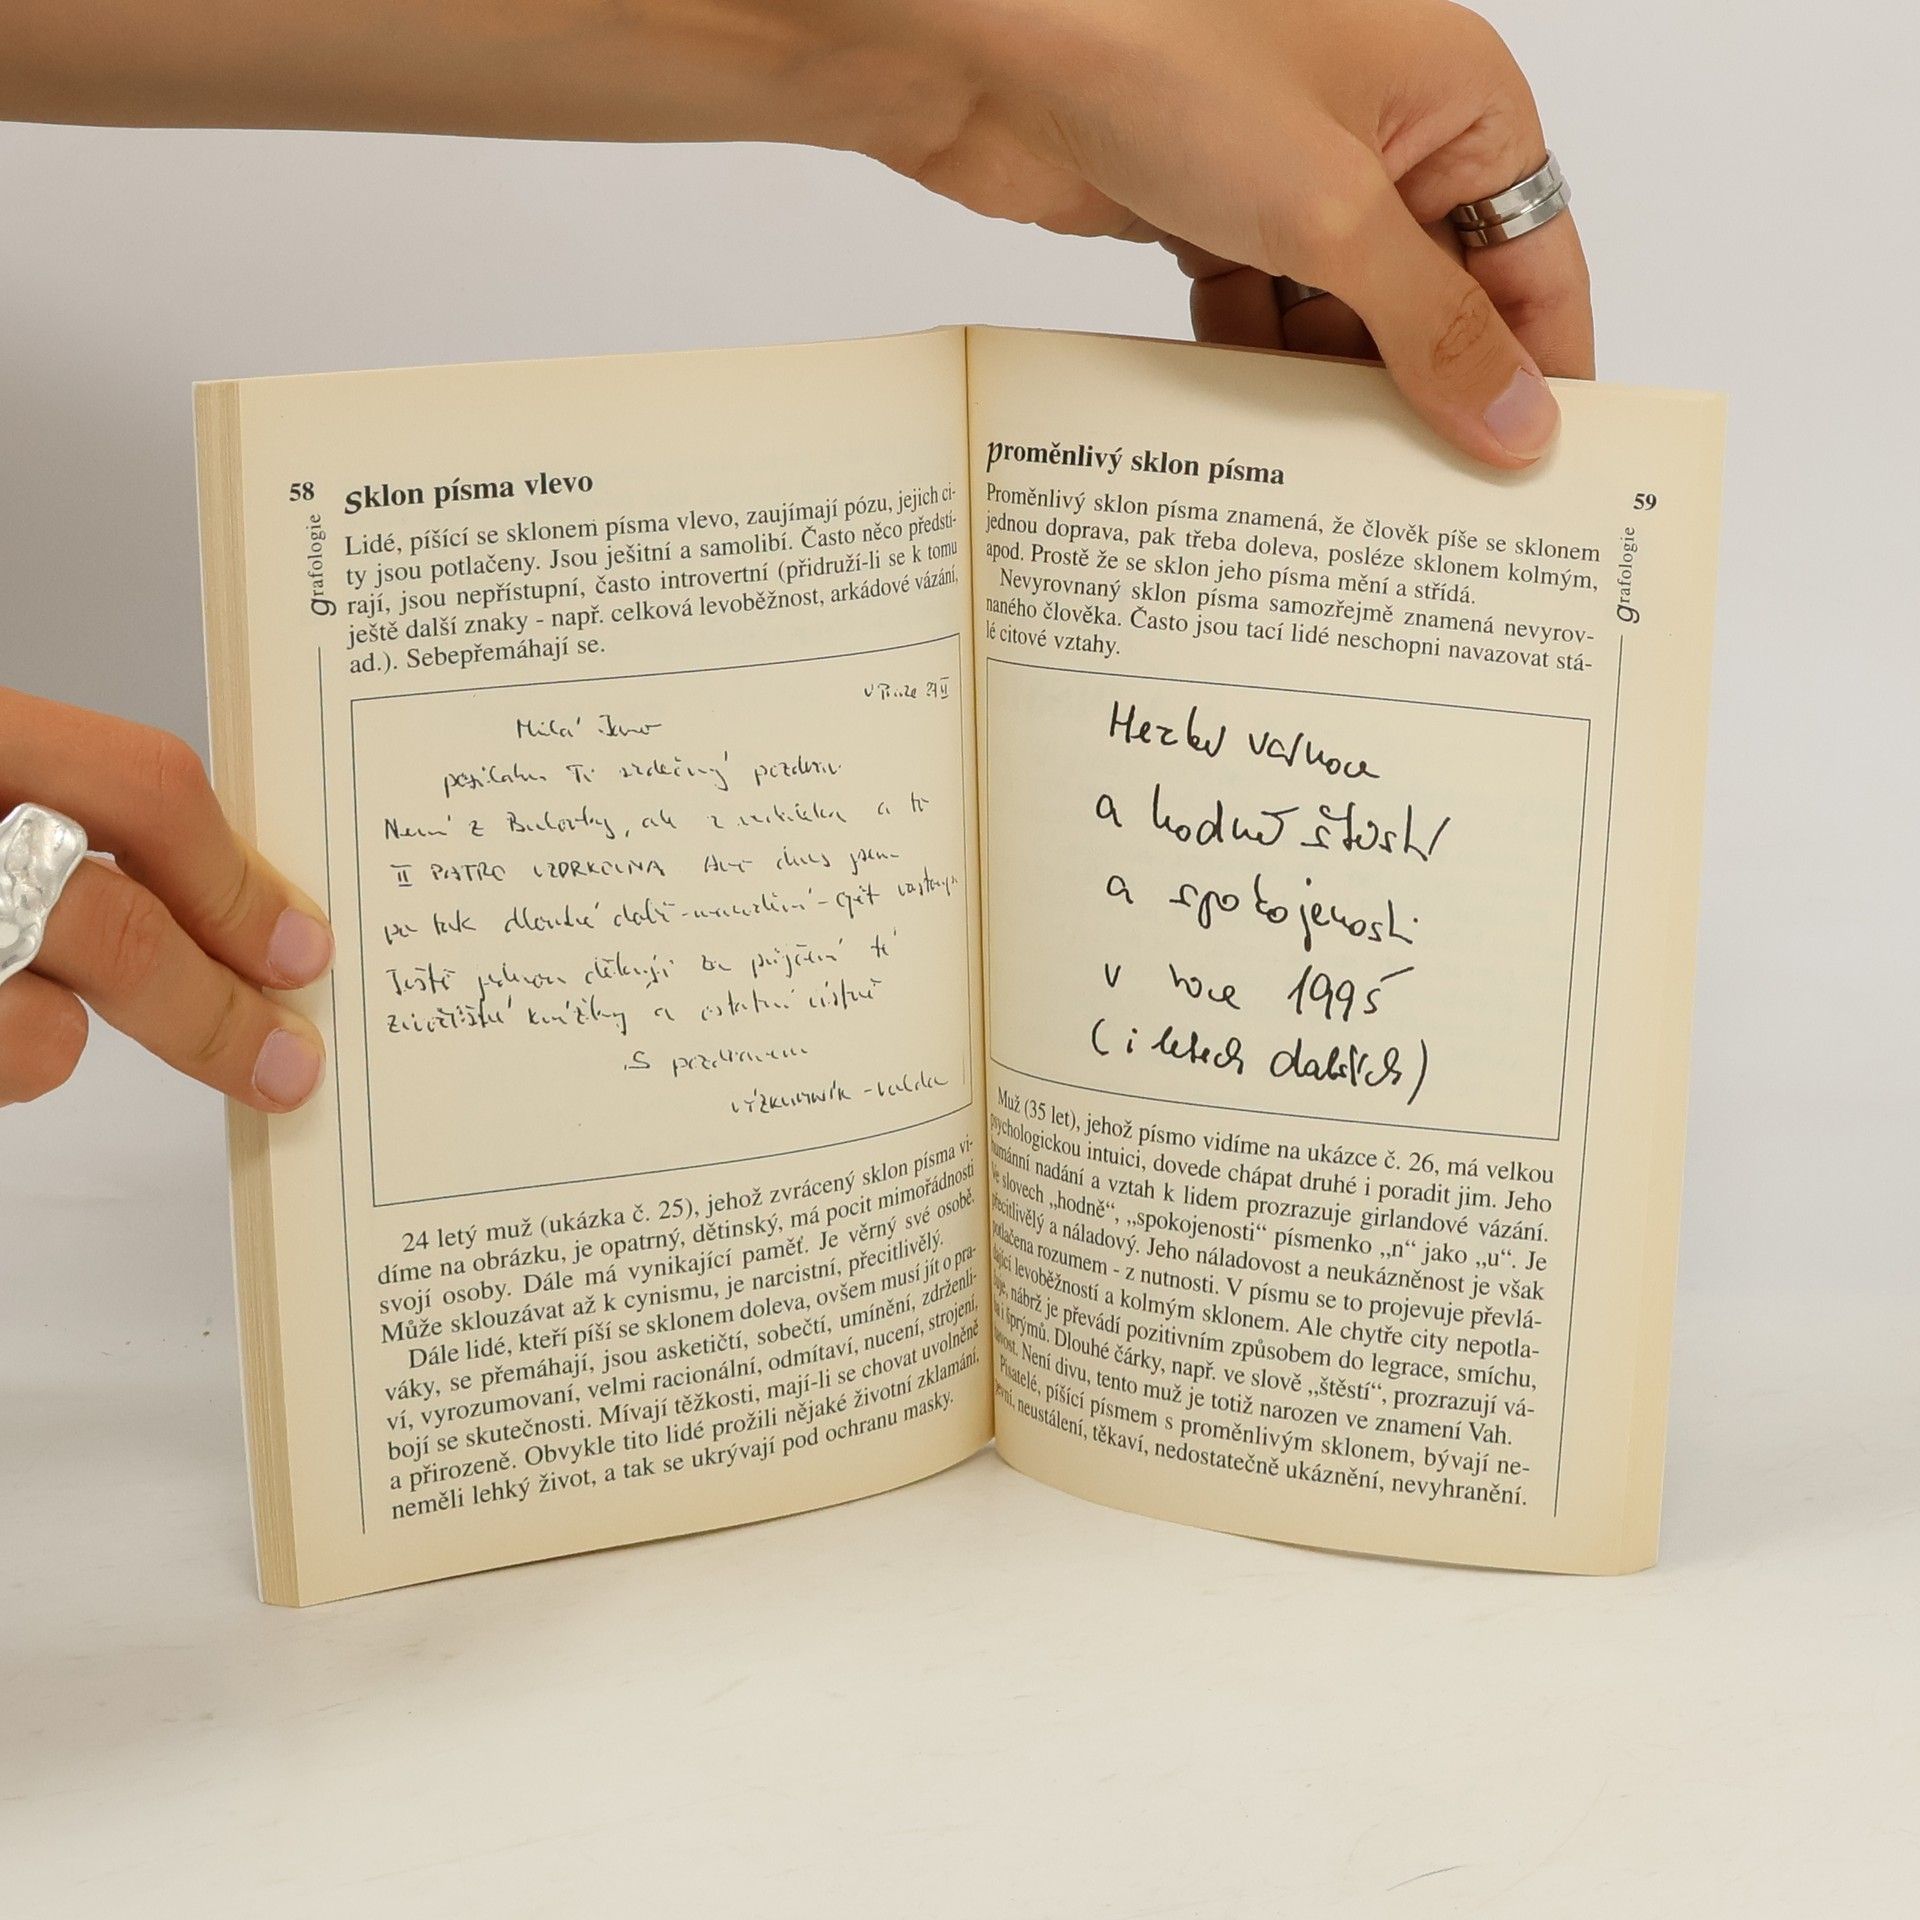 58
grafologie
sklon písma vlevo
Lidé, píšící se sklonem písma vlevo, zaujímají pózu, jejich ci-
ty jsou potlačeny. Jsou ješitní a samolibí. Často něco předstí-
rají, jsou nepřístupní, často introvertní (přidruží-li se k tomu
ještě další znaky - např. celková levoběžnost, arkádové vázání,
ad.). Sebepřemáhají se.
Milá
posílám Ti srdečný pozdrav
Není z Bulovky, ale z a to
II PATRO
po tak dlouhé době
Ještě jednou děkuji za půjčení té
knížky a ostatní
S pozdravem
24 letý muž (ukázka č. 25), jehož zvrácený sklon písma vi-
díme na obrázku, je opatrný, dětinský, má pocit mimořádnosti
svojí osoby. Dále má vynikající paměť. Je věrný své osobě.
Může sklouzávat až k cynismu, je narcistní, přecitlivělý.
Dále lidé, kteří píší se sklonem doleva, ovšem musí jít o pra-
váky, se přemáhají, jsou asketičtí, sobečtí, umínění, zdrženli-
ví, vyrozumovaní, velmi racionální, odmítaví, nucení, strojení,
bojí se skutečnosti. Mívají těžkosti, mají-li se chovat uvolněně
a přirozeně. Obvykle tito lidé prožili nějaké životní zklamání,
neměli lehký život, a tak se ukrývají pod ochranu masky.
proměnlivý sklon písma
59
grafologie
Proměnlivý sklon písma znamená, že člověk píše se sklonem
jednou doprava, pak třeba doleva, posléze sklonem kolmým,
apod. Prostě že se sklon jeho písma mění a střídá.
Nevyrovnaný sklon písma samozřejmě znamená nevyrov-
naného člověka. Často jsou tací lidé neschopni navazovat stá-
lé citové vztahy.
Hezké vánoce
a hodně štěstí
a spokojenosti
v roce 1995
(i letech dalších)
Muž (35 let), jehož písmo vidíme na ukázce č. 26, má velkou
psychologickou intuici, dovede chápat druhé i poradit jim. Jeho
humánní nadání a vztah k lidem prozrazuje girlandové vázání.
Ve slovech „hodně“, „spokojenosti“ písmenko „n“ jako „u“. Je
přecitlivělý a náladový. Jeho náladovost a neukázněnost je však
potlačena rozumem - z nutnosti. V písmu se to projevuje převlá-
dající levoběžností a kolmým sklonem. Ale chytře city nepotla-
čuje, nábrž je převádí pozitivním způsobem do legrace, smíchu,
i šprýmů. Dlouhé čárky, např. ve slově „štěstí“, prozrazují vá-
havost. Není divu, tento muž je totiž narozen ve znamení Vah.
Pisatelé, píšící písmem s proměnlivým sklonem, bývají ne-
pevní, neustálení, těkaví, nedostatečně ukáznění, nevyhranění.